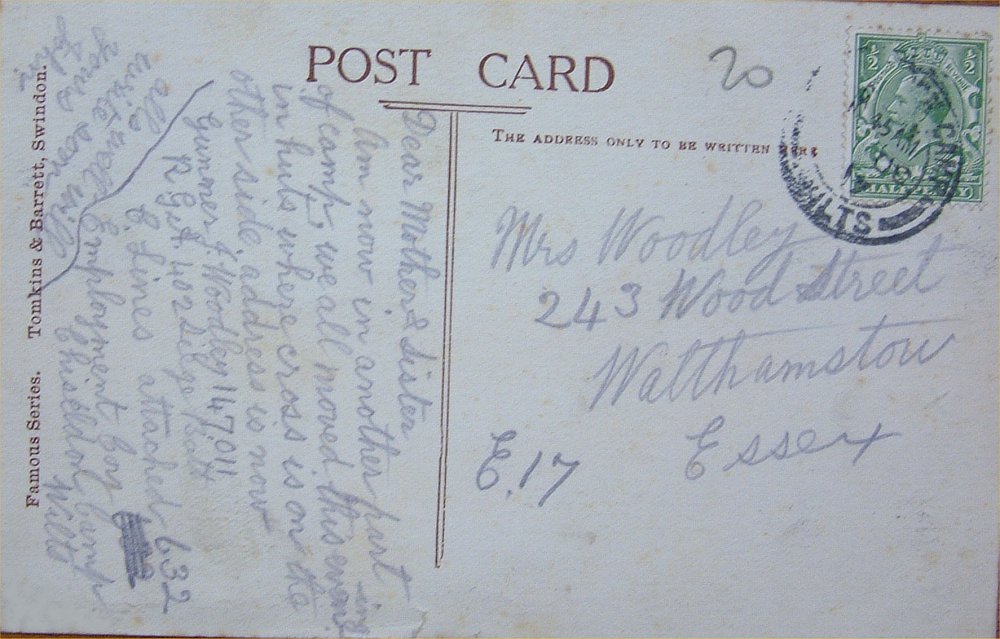 POST CARD
THE ADDRESS ONLY TO BE WRITTEN HERE
20
½ ½
HALFPENNY
WILTS
Mrs Woodley
243 Wood Street
Walthamstow
Essex
E.17
Dear Mother & Sister
Am now in another part
of camp, we all moved this evening
in huts where cross is on the
other side, address is now
Gunner J. Woodley 147011
R.G.A. 402 Seige Batt
C Lines attached 632
Employment Coy
Chiseldon Camp
Wilts
all
write
you soon
Famous Series. Tomkins & Barrett, Swindon.